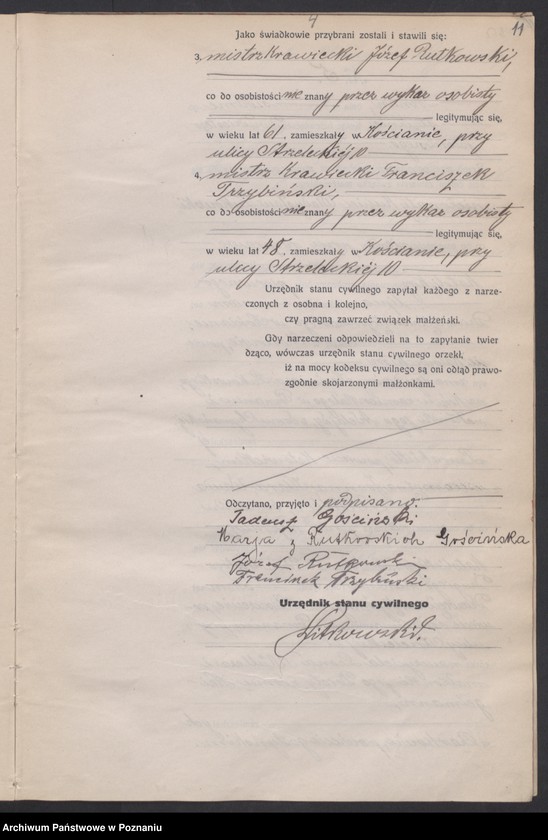 4
11
Jako świadkowie przybrani zostali i stawili się:
3. mistrz Krawiecki Józef Rutkowski,
co do osobistości nie znany przez wykaz osobisty
legitymując się,
w wieku lat 61, zamieszkały w Kościanie, przy
ulicy Strzeleckiej 10
4. mistrz Krawiecki Franciszek
Trzybiński,
co do osobistości nie znany przez wykaz osobisty
legitymując się,
w wieku lat 48, zamieszkały w Kościanie, przy
ulicy Strzeleckiej 10
Urzędnik stanu cywilnego zapytał każdego z narze-
czonych z osobna i kolejno,
czy pragną zawrzeć związek małżeński.
Gdy narzeczeni odpowiedzieli na to zapytanie twier
dząco, wówczas urzędnik stanu cywilnego orzekł,
iż na mocy kodeksu cywilnego są oni odtąd prawo-
zgodnie skojarzonymi małżonkami.
Odczytano, przyjęto i podpisano:
Tadeusz Gościński
Marja z Rutkowskich Gościńska
Józef Rutkowski
Franciszek Trzybiński
Urzędnik stanu cywilnego
Archiwum Państwowe w Poznaniu